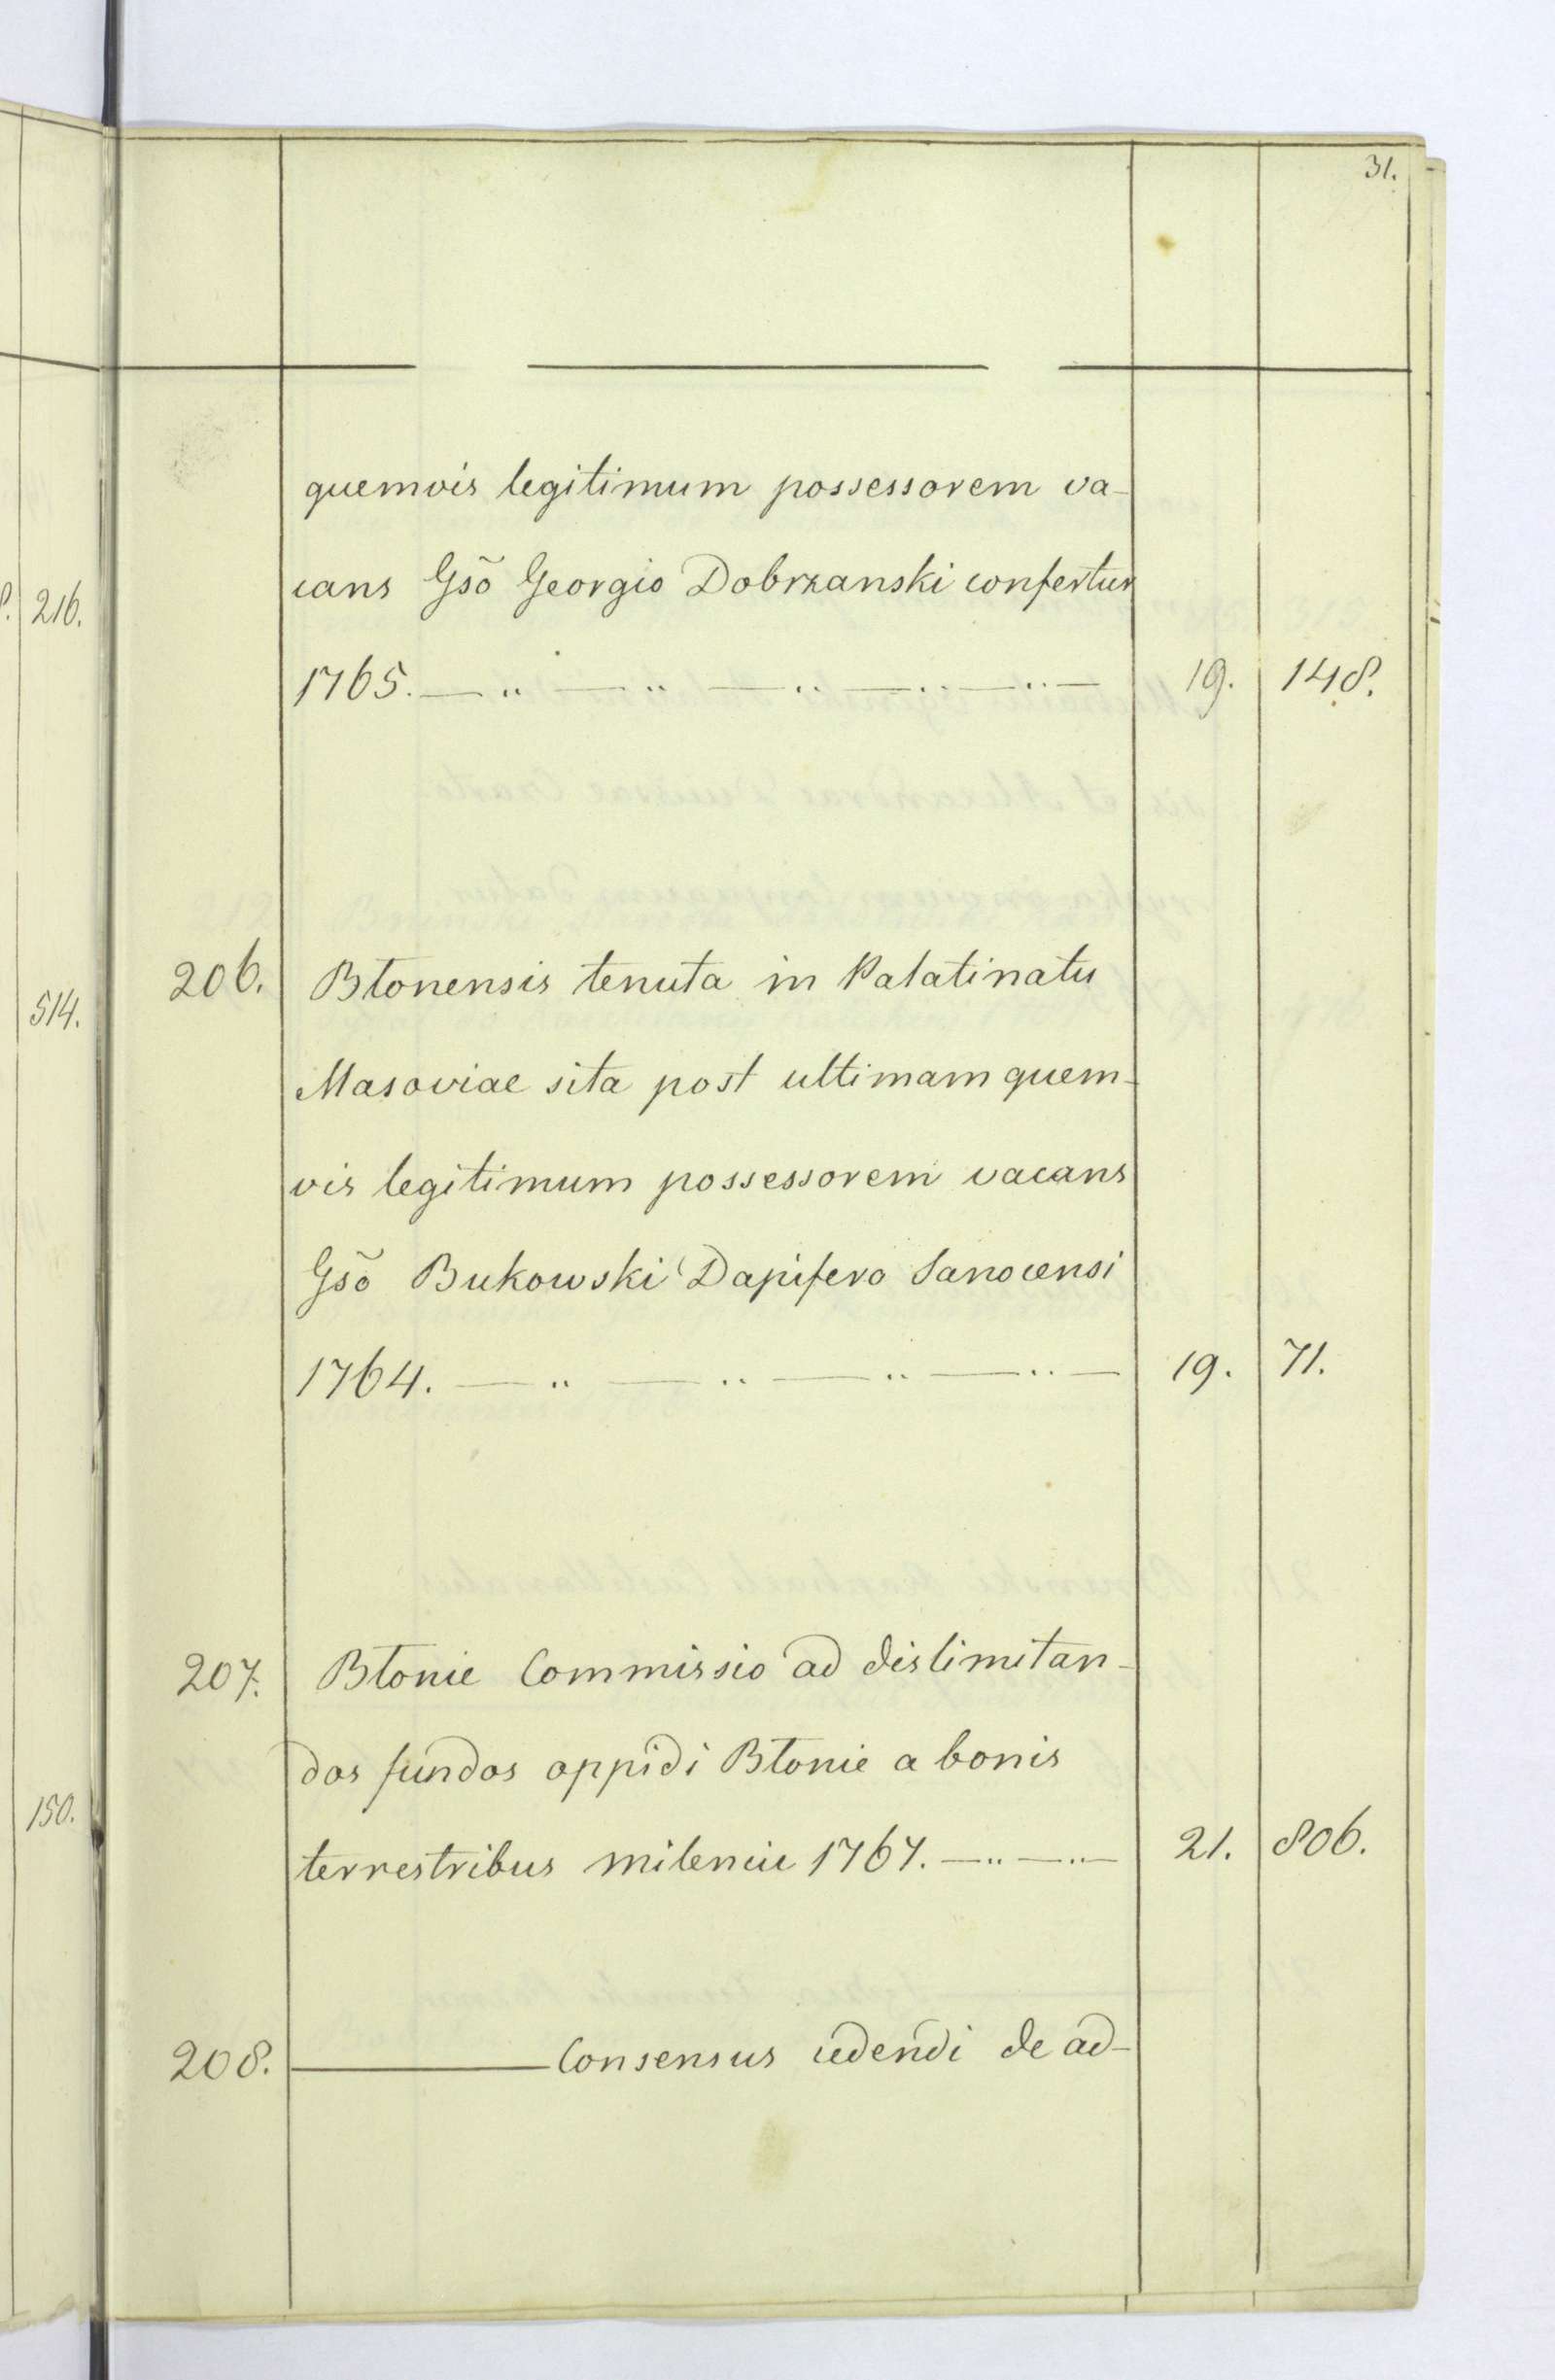 31.
quemvis legitimum possessorem va-
cans Gsõ Georgio Dobrzanski confertur
1765. — „ — „ — „ — „ — „ — 19. 148.
206. Błonensis tenuta in Palatinatu
Masoviae sita post ultimam quem-
vis legitimum possessorem vacans
Gsõ Bukowski Dapifero Sanocensi
1764. — „ — „ — „ — „ — 19. 71.
207. Błonie Commissio ad dislimitan-
dos fundos oppidi Błonie a bonis
terrestribus milencie 1767. — „ — „ — 21. 806.
208. ——— Consensus cedendi de ad-
216.
514.
150.